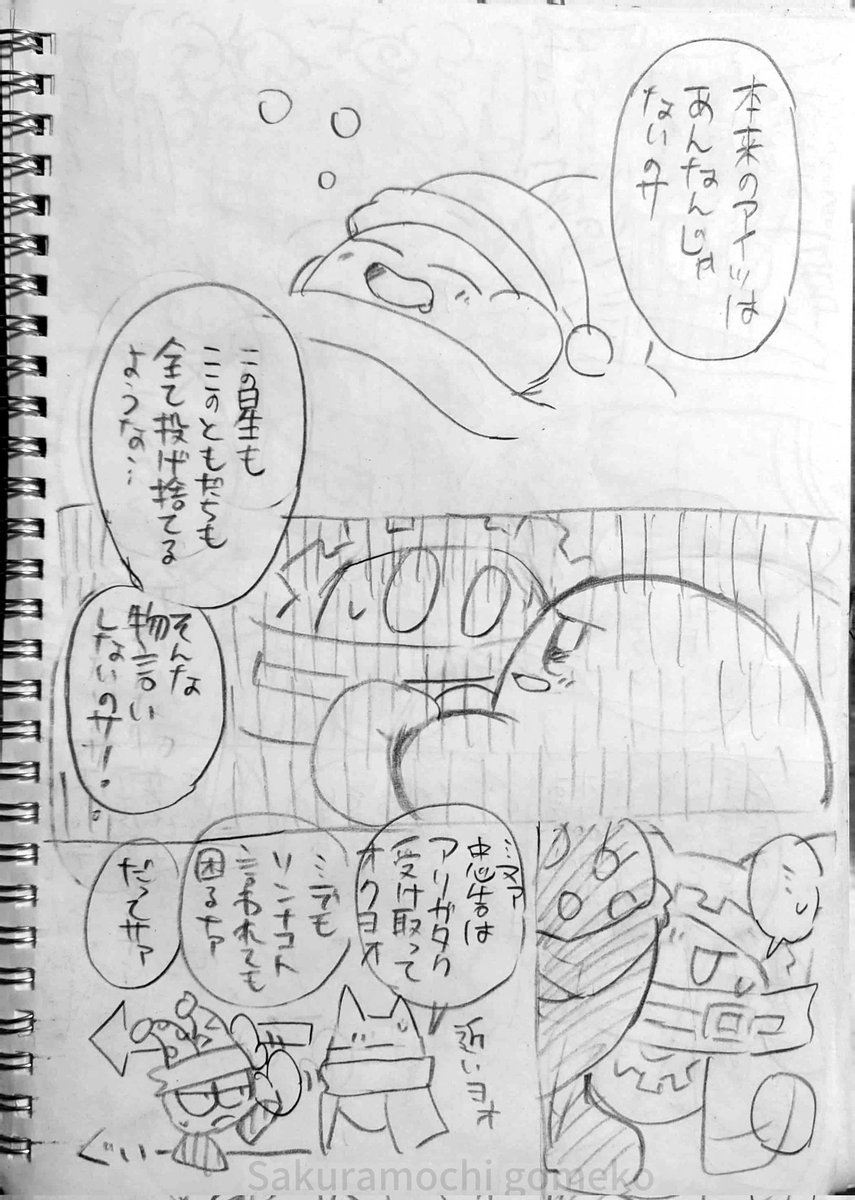 本来のアイツは
あんなんじゃ
ないのサ
この星も
ここのともだちも
全て投げ捨てる
ような…
そんな
物言い
しないのサ！。
…
…マァ
忠告は
アリガタク
受け取って
オクヨォ
…でも
ソンナコト
言われても
困るナァ
だってサァ
近いヨォ
ぐいー
Sakuramochi gomeko